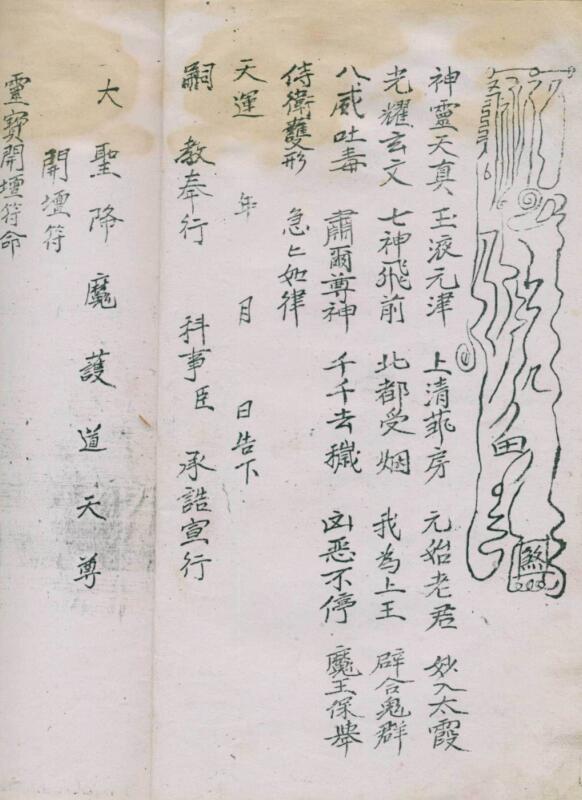 煞
神靈天真 玉液元津 上清菲房 元始老君 妙入太霞
光耀玄文 七神飛前 北都受烟 我為上王 辟合鬼群
八威吐毒 肅爾尊神 千千去穢 凶惡不停 魔王保舉
侍衛護形 急々如律
天運 年 月 日告下
嗣 教奉行 科事臣 承誥宣行
大聖降魔護道天尊
開壇符
靈寶開壇符命